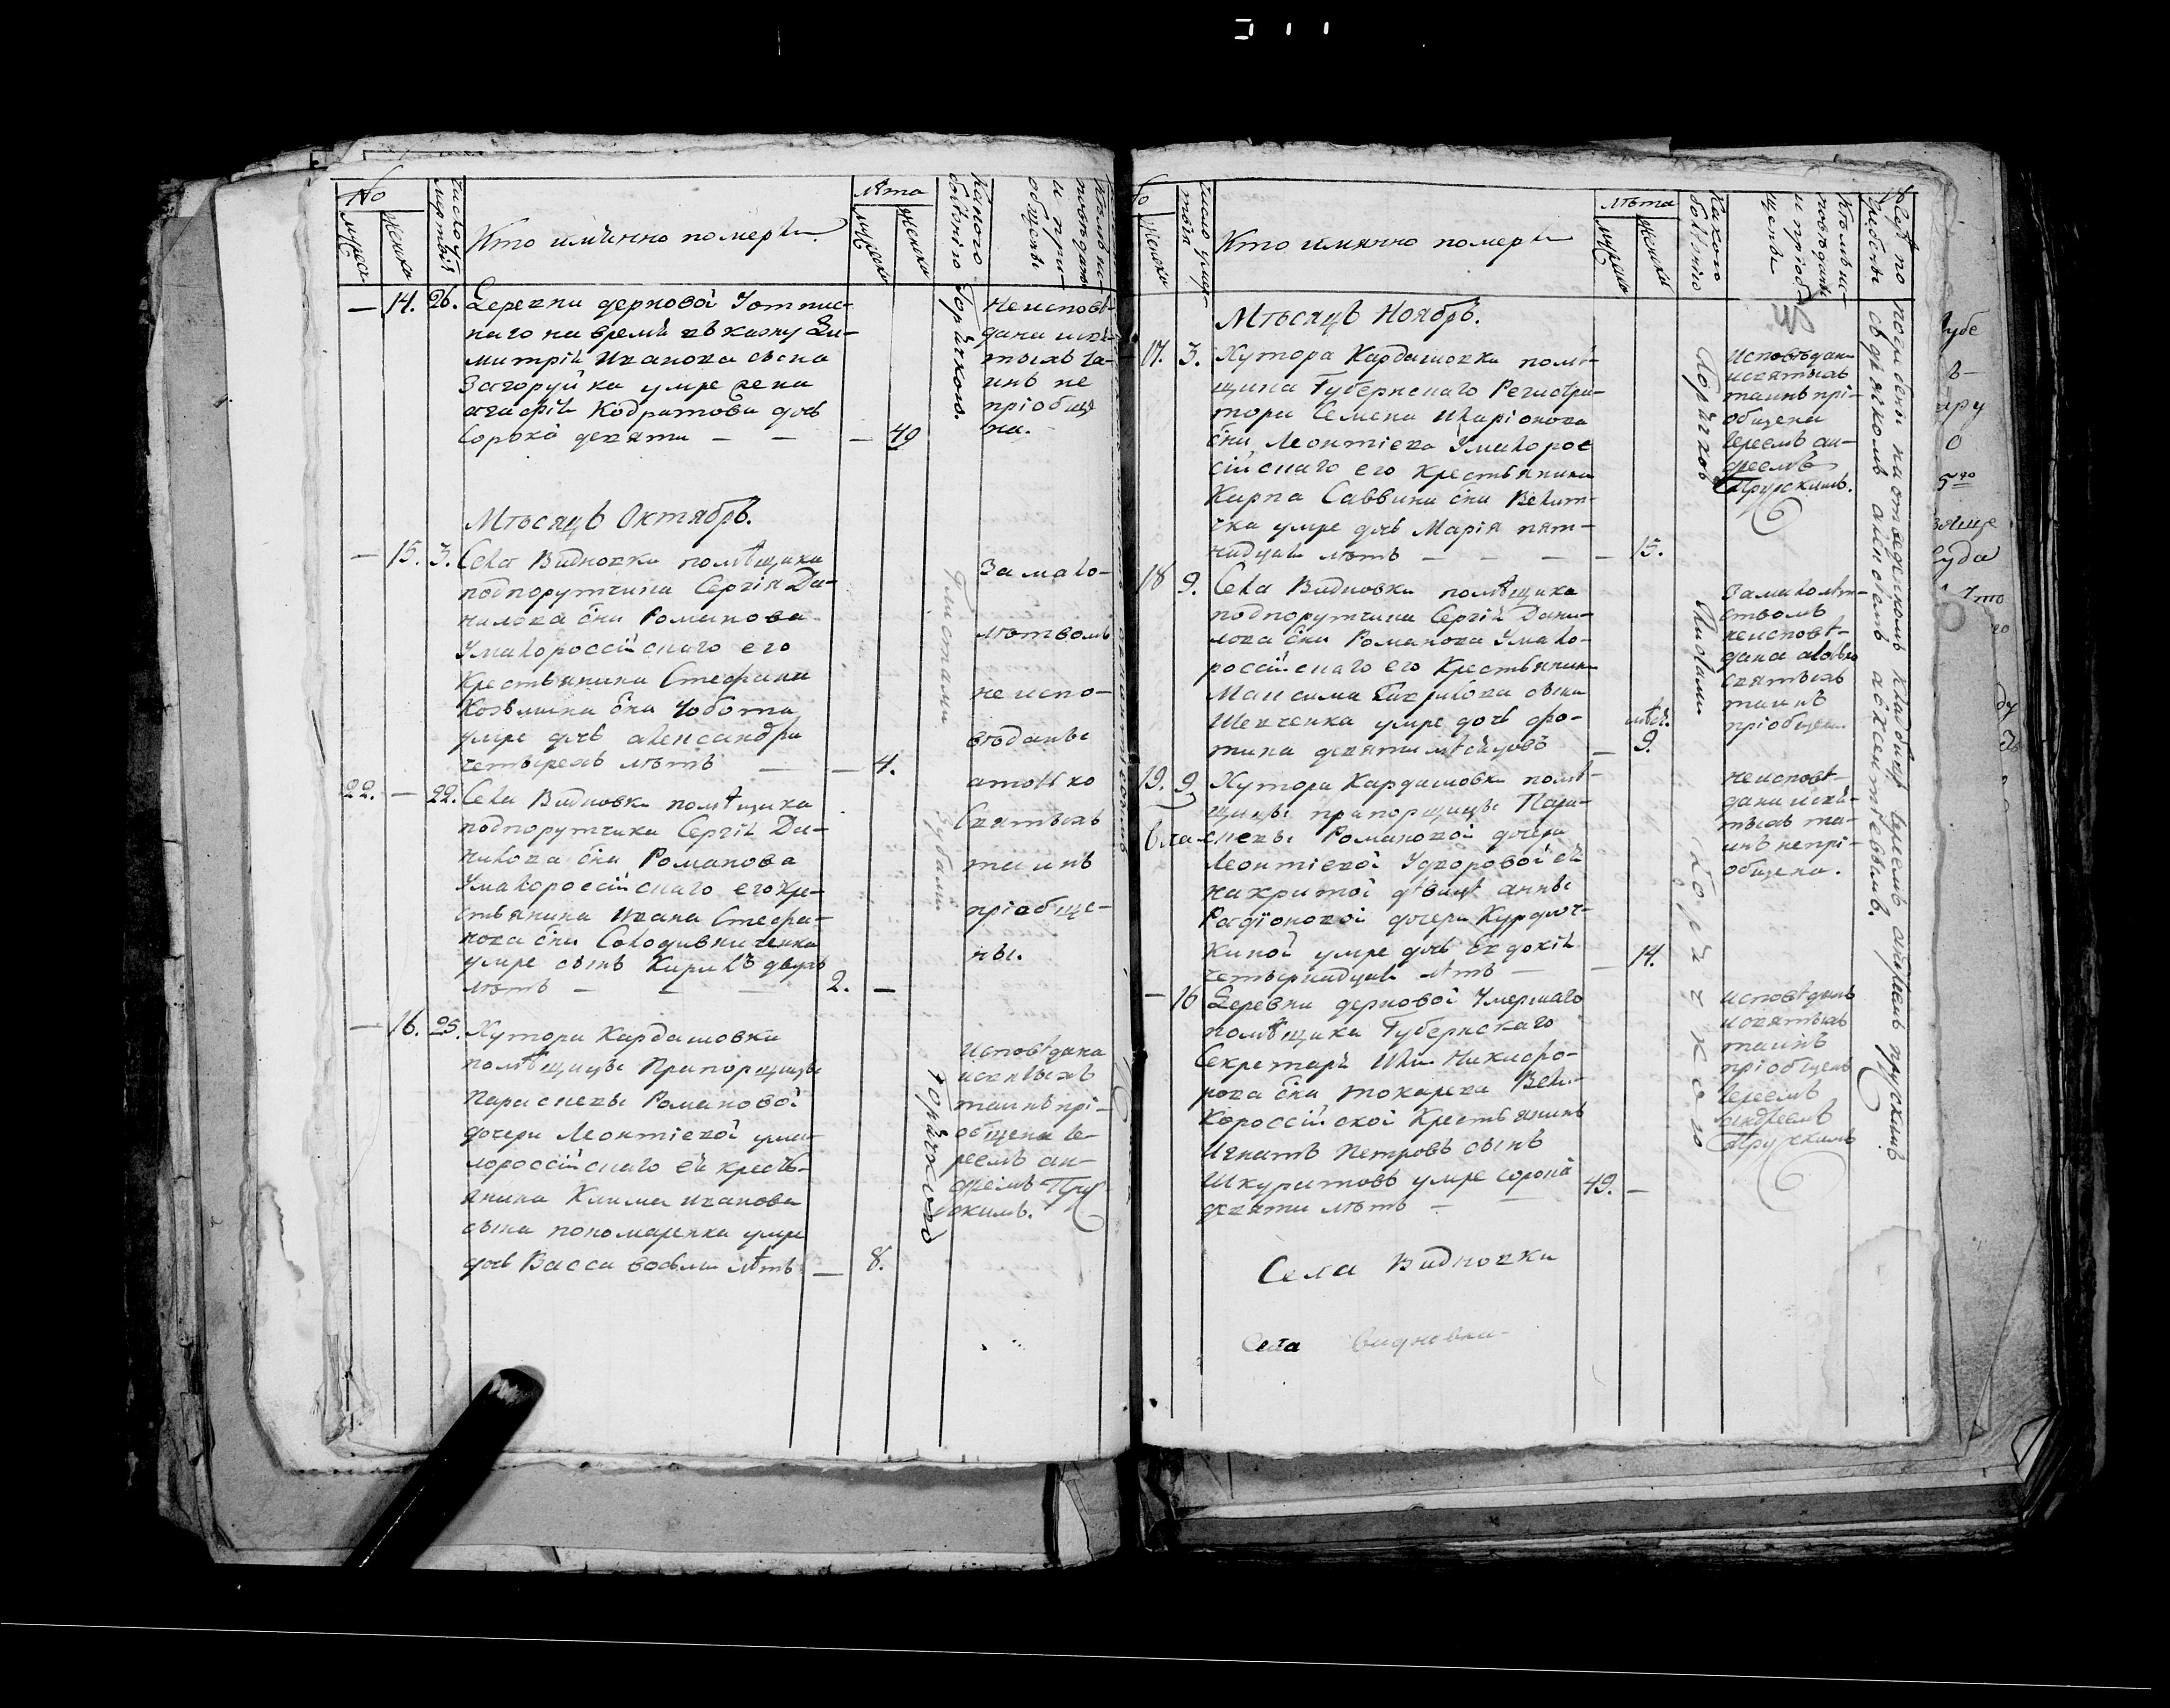 №
мужеск
женска
Кто имянно померъ
лѣта
мужеска
женска
Какого
болѣзнію
— 14. 26. Деревни дерновой Уотпис-
наго на время въ казну Ди-
митрія Иванова сына
Загоруйка умре жена
агафія Кодратова дочь
сорокъ девяти — — — 49
Горячкою.
Неисповѣ-
дана исвя-
тыхъ та-
инъ не
пріобще
на.
Мѣсяцъ Октябрь.
— 15. 3. Села Видновки помѣщика
подпорутчика Сергія Да-
нилова сна Романова
Умалороссійскаго его
Крестьянина Стефана
Козьмина сна Чобота
умре дочь александра
четырехъ лѣтъ — — 4.
Глистами
22. — 22. Села Видновки помѣщика
подпорутчика Сергія Да-
нилова сна Романова
Умалороссійскаго его Кре-
стьянина Ивана Стефа-
нова сна Солодивниченка
умре сынъ Кирилъ двухъ
лѣтъ — — — 2. —
Зубами
За мало-
лѣтвомъ
не испо-
вѣданы
атокмо
Святыхъ
таинъ
пріобще-
ны.
— 16. 25. Хутора Кардашовки
помѣщицы Прапорщицы
Параскевы Романовой
дочери Леонтіевой ума-
лороссійскаго ея кресть-
янина Клима иванова
сына пономаренка умре
дочь Васса восьми лѣтъ — 8.
Горячкою
Исповѣдана
исвятыхъ
таинъ прі-
общена іе-
реемъ ан-
дреемъ Пру-
скимъ.
женска
Кто имянно померъ
лѣта
мужеска
женска
Какого
болѣзнію
Мѣсяцъ Ноябрь.
17. 3. Хутора Кардашовки помѣ-
щика Губернскаго Регистра-
тора Семена Иларіонова
сна Леонтіева Умалорос
сійскаго его Крестьянина
Карпа Саввина сна Велит-
чка умре дочь Марія пят-
надцати лѣтъ — — — — 15.
Исповѣдан
исвятыхъ
таинъ прі-
общена
іереемъ ан-
дреемъ
Прускимъ.
18 9. Села Видновки помѣщика
подпорутчика Сергія Дани-
лова сна Романова Умало-
россійскаго его Крестьянина
Максима Гаврилова сына
Шевченка умре дочь фо-
тина девяти мѣсяцовъ — мѣс. 9.
Замалолѣт-
ствомъ
неисповѣ-
дана атокмо
святыхъ
таинъ
пріобщен.
19. 9. Хутора Кардашовки помѣ-
щицы прапорщицы Пара-
скевы Романовой дочери
Леонтіевой Удворовой ея
накритой дѣвицы анны
Радіоновой дочери Курдюч-
киной умре дочь Евдокія
четырнадцати лѣтъ — — 14.
неисповѣ-
дана исвя-
тыхъ та-
инъ непрі-
общена.
— 16 Деревни дерновой Умершаго
помѣщика Губернскаго
Секретаря Ильи Никифо-
рова сна токарева Вели-
короссійской Крестьянинъ
Игнатъ Петровъ сынъ
Шкуритовъ умре сорокъ
девяти лѣтъ — — 49. —
Горячкою
исповѣданъ
исвятыхъ
таинъ
пріобщенъ
іереемъ
андреемъ
Прускимъ
Села Видновки
Села Видновки